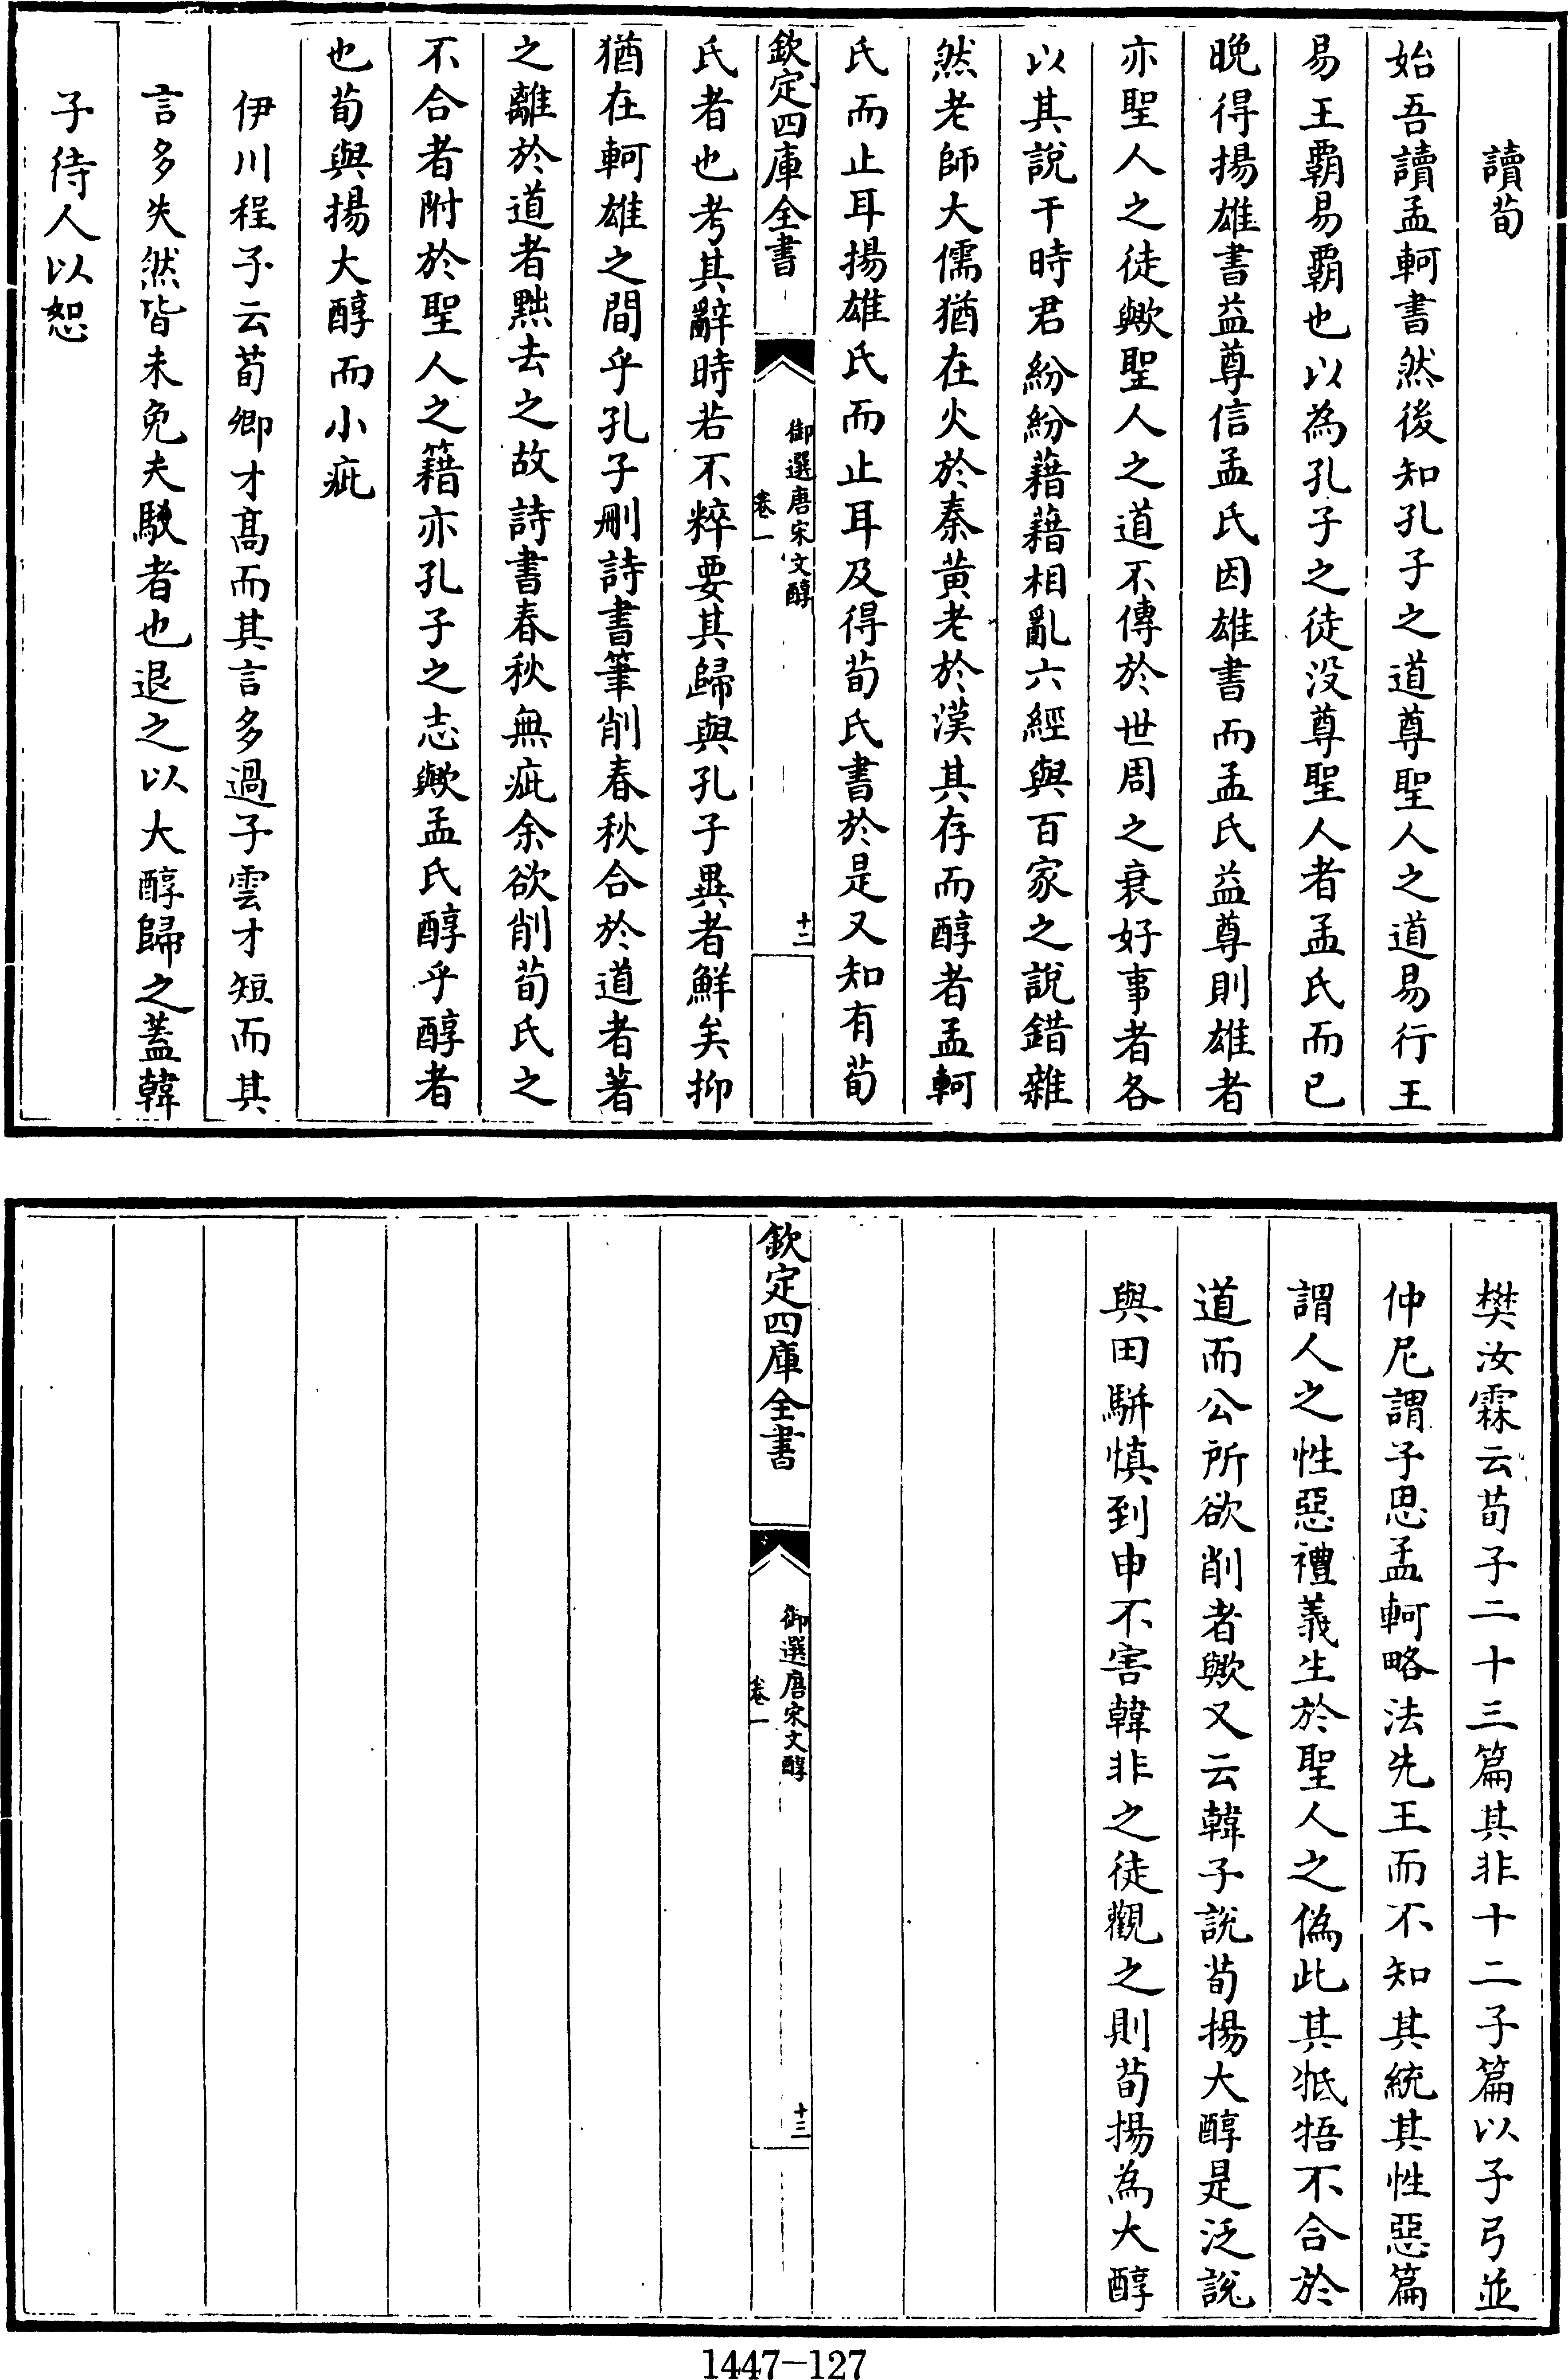 讀荀
始吾讀孟軻書然後知孔子之道尊聖人之道易行王
易王霸易霸也以為孔子之徒没尊聖人者孟氏而已
晚得揚雄書益尊信孟氏因雄書而孟氏益尊則雄者
亦聖人之徒歟聖人之道不傳於世周之衰好事者各
以其說干時君紛紛藉藉相亂六經與百家之說錯雜
然老師大儒猶在火於秦黄老於漢其存而醇者孟軻
氏而止耳揚雄氏而止耳及得荀氏書於是又知有荀
欽定四庫全書
御選唐宋文醇
卷一
十二
氏者也考其辭時若不粹要其歸與孔子異者鮮矣抑
猶在軻雄之間乎孔子刪詩書筆削春秋合於道者著
之離於道者黜去之故詩書春秋無疵余欲削荀氏之
不合者附於聖人之籍亦孔子之志歟孟氏醇乎醇者
也荀與揚大醇而小疵
伊川程子云荀卿才髙而其言多過子雲才短而其
言多失然皆未免夫駁者也退之以大醇歸之蓋韓
子待人以恕
樊汝霖云荀子二十三篇其非十二子篇以子弓並
仲尼謂子思孟軻略法先王而不知其統其性惡篇
謂人之性惡禮義生於聖人之偽此其牴牾不合於
道而公所欲削者歟又云韓子說荀揚大醇是泛說
與田駢慎到申不害韓非之徒觀之則荀揚為大醇
欽定四庫全書
御選唐宋文醇
卷一
十三
1447-127